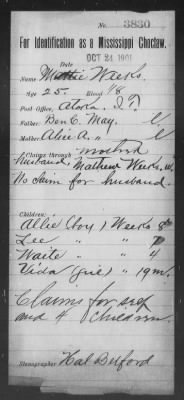 No. 3830
For Identification as a Mississippi Choctaw.
OCT 24 1901
Date
Name Mattie Weeks.
Age 25. Blood 1/8
Post Office, Atoka. I.T.
Father: Ben C. May. l
Mother: Alice A. " l
Claims through mother
Husband, Mathew Weeks, w.
No claim for husband.
Children:
Allie (boy) Weeks 8
Lee " " 7
Waite " " 4
Vida (girl) " 19m.
Claims for self
and 4 children.
Stenographer Hal Belford